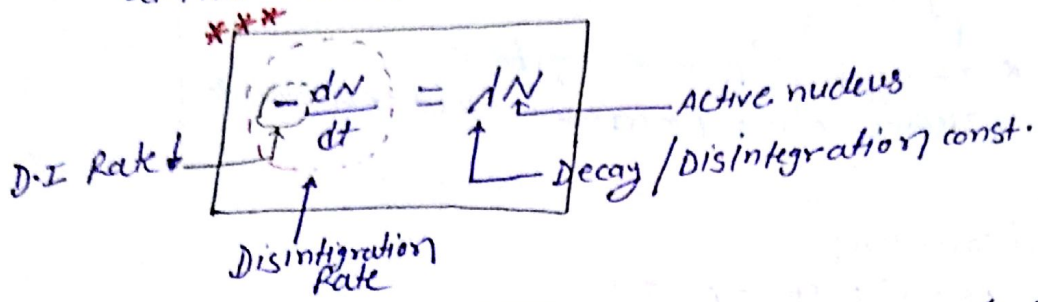 ***
-dN/dt = λN
Active nucleus
D.I Rate ↓
Decay / Disintegration const.
Disintigration
Rate